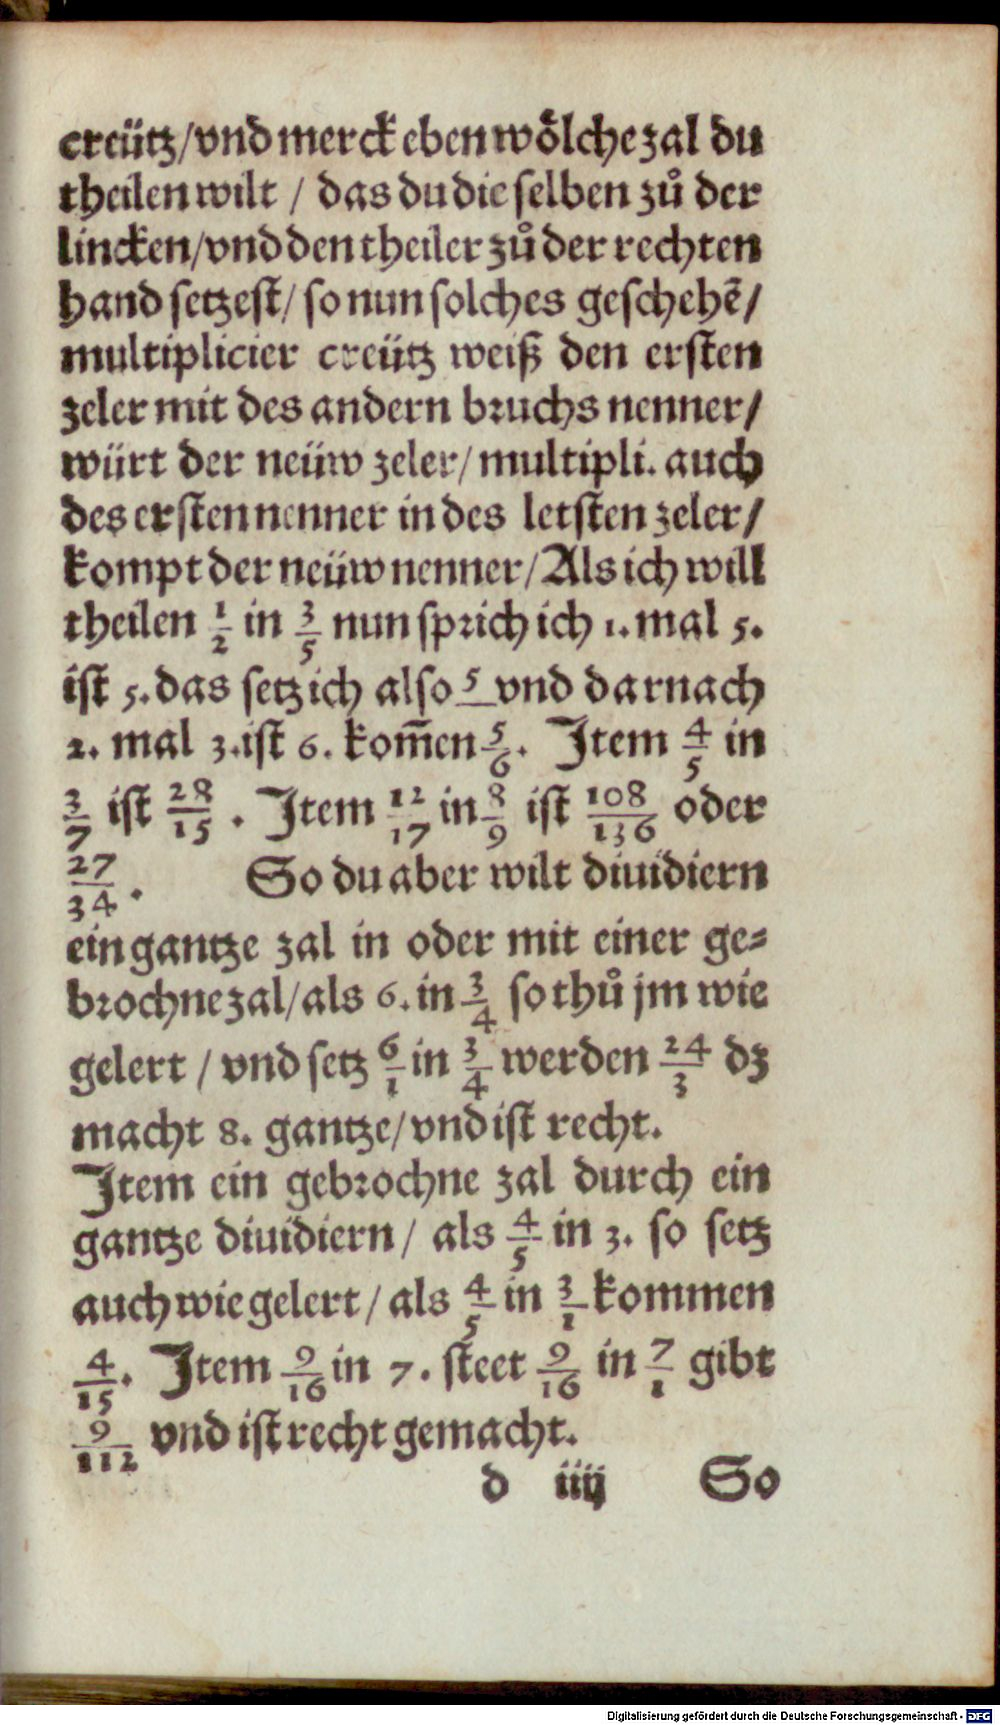 creütz/vnd merck eben woͤlche zal du
theilen wilt / das du die selben zuͦ der
lincken/vnd den theiler zuͦ der rechten
hand setzest/ so nun solches geschehẽ/
multiplicier creütz weiß den ersten
zeler mit des andern bruchs nenner/
würt der neüw zeler/multipli. auch
des ersten nenner in des letsten zeler/
kompt der neüw nenner/Als ich will
theilen 1/2 in 3/5 nun sprich ich 1. mal 5.
ist 5. das setz ich also 5/ vnd darnach
2. mal 3.ist 6. kom̃en 5/6. Item 4/5 in
3/7 ist 28/15 . Item 12/17 in 8/9 ist 108/136 oder
27/34 . So du aber wilt diuidiern
ein gantze zal in oder mit einer ge⸗
brochne zal/als 6. in 3/4 so thuͦ jm wie
gelert / vnd setz 6/1 in 3/4 werden 24/3 dz
macht 8. gantze/vnd ist recht.
Item ein gebrochne zal durch ein
gantze diuidiern/ als 4/5 in 3. so setz
auch wie gelert/als 4/5 in 3/1 kommen
4/15. Item 9/16 in 7. steet 9/16 in 7/1 gibt
9/112 vnd ist recht gemacht.
d iiij So
Digitalisierung gefördert durch die Deutsche Forschungsgemeinschaft - DFG